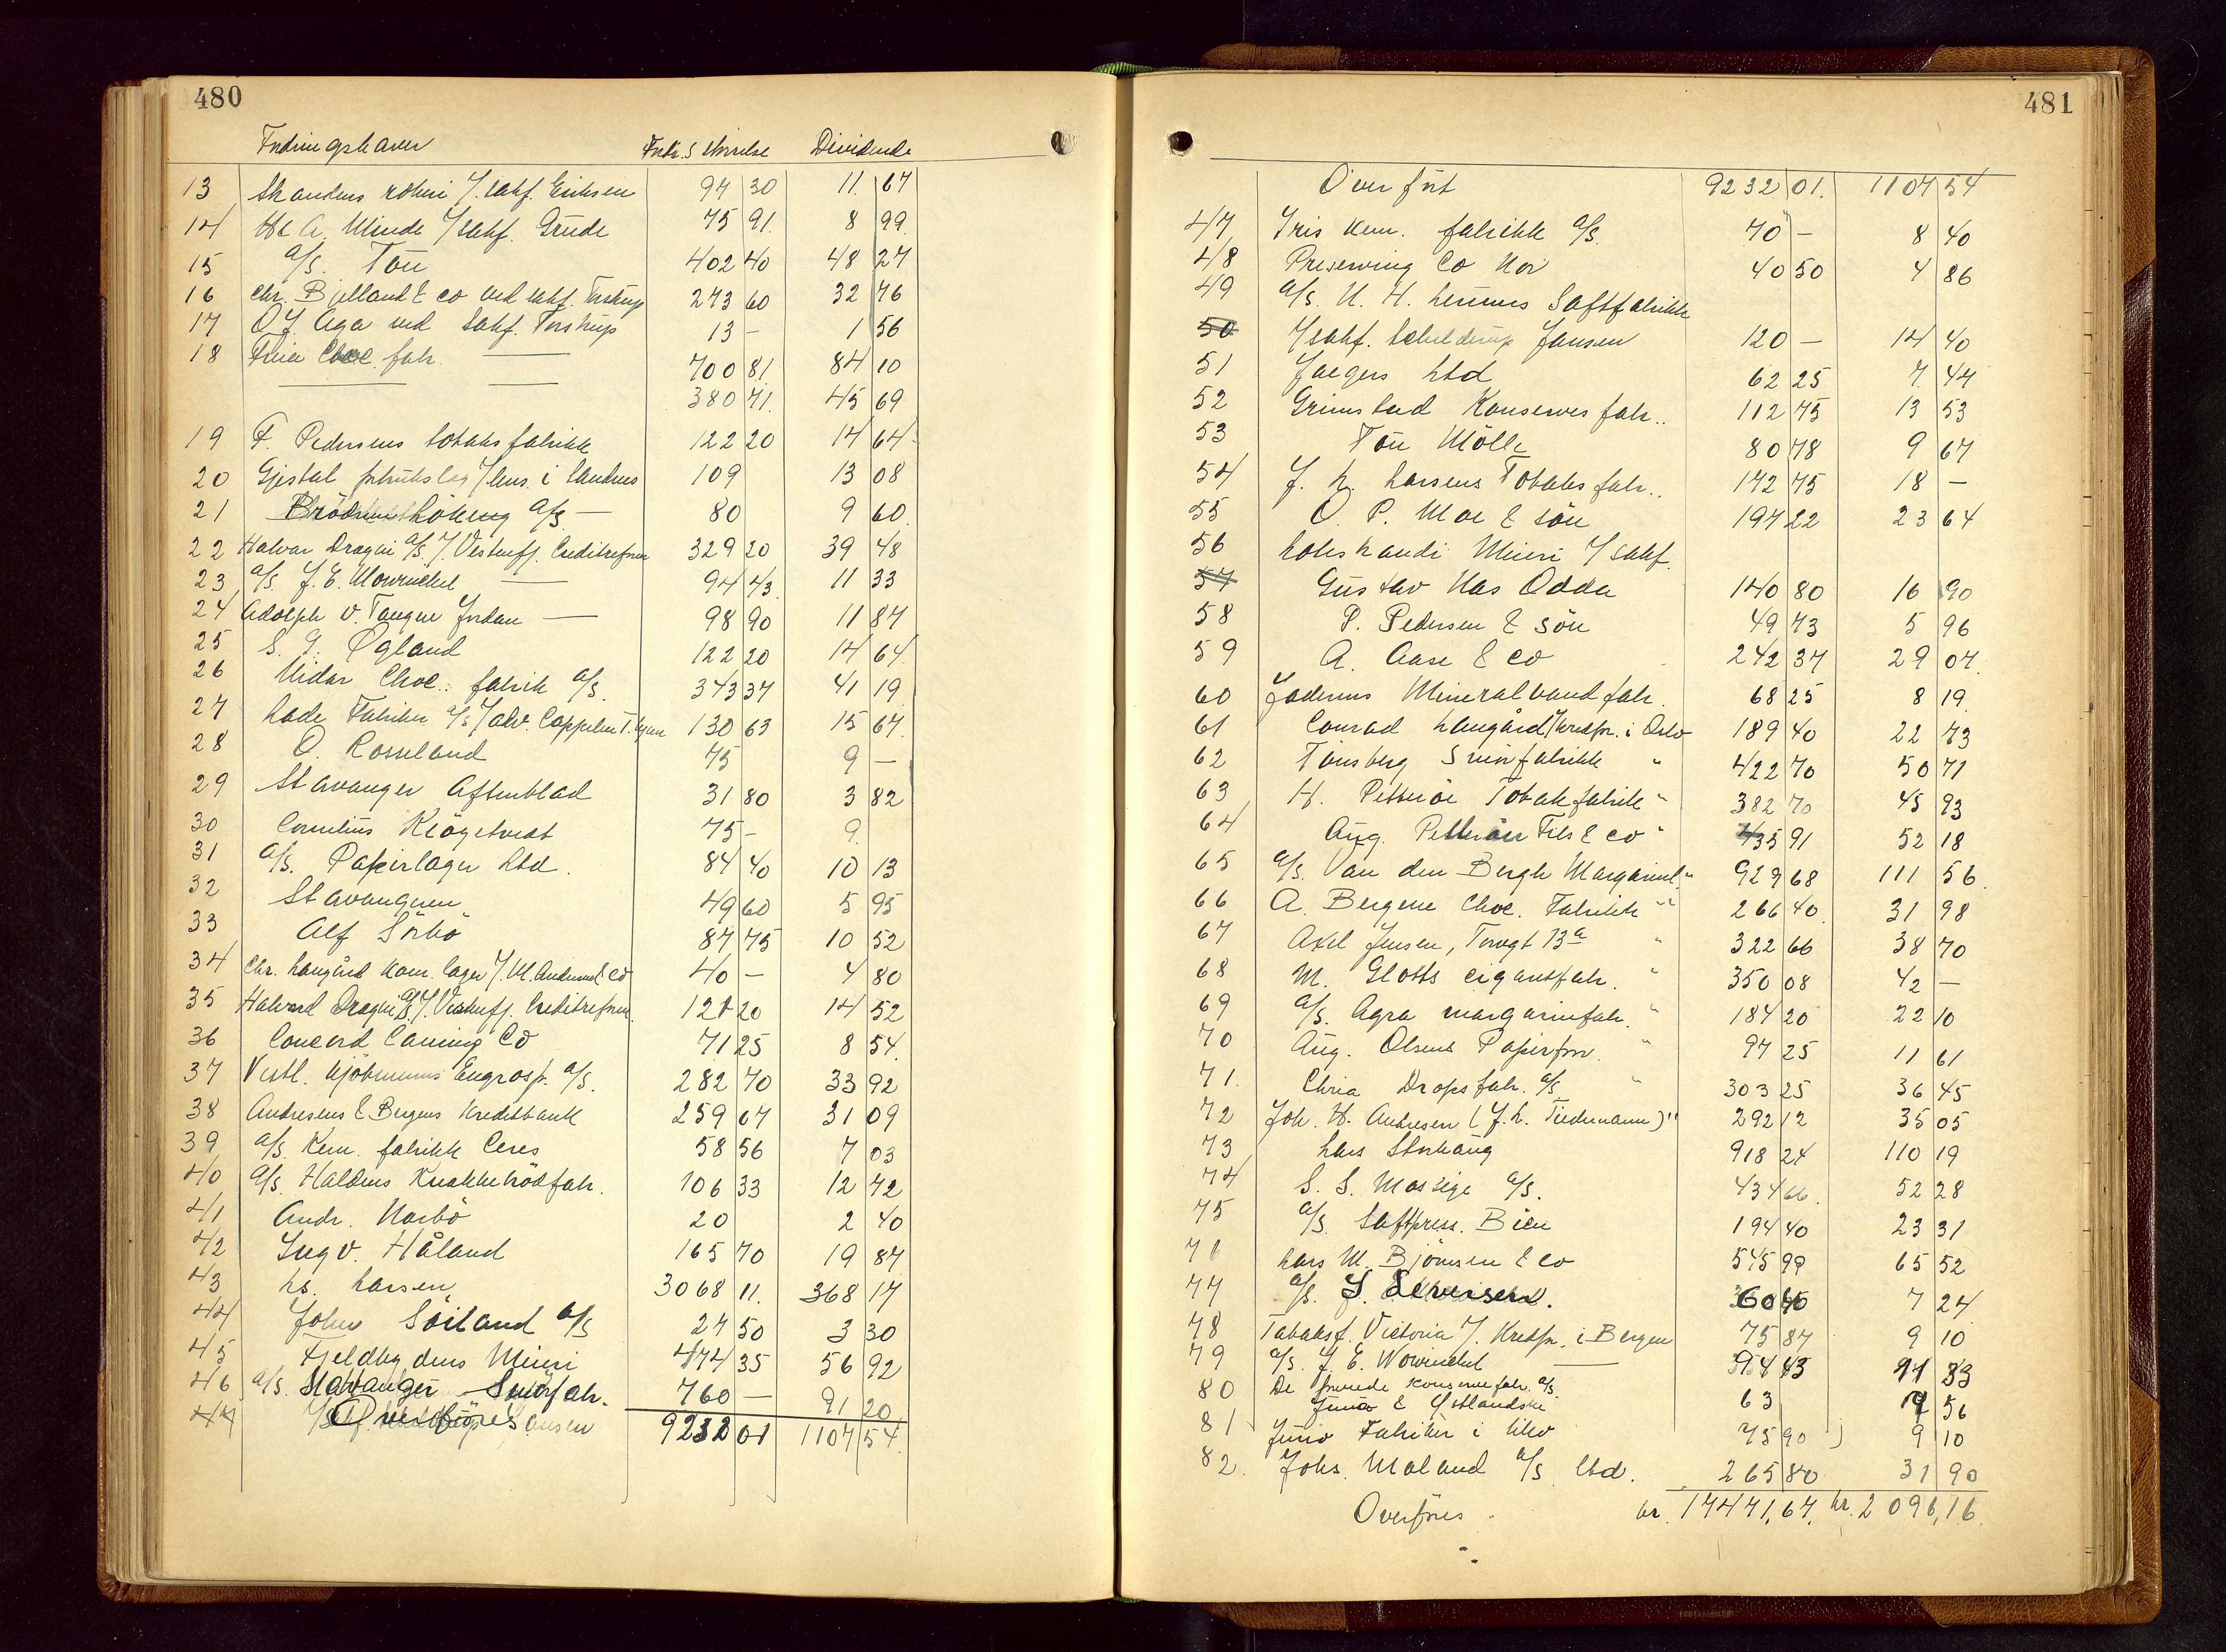 480
Fordringshaver Fordr.s störrelse Dividende
13 Skaudens rökeri v/ sakf. Eriksen 97 30 11 67
14 A. Minde v/ sakf. Grude 75 91 8 99
15 a/s. Tou 402 40 48 27
16 Chr. Bjelland & Co ved sakf. Torstrup 273 60 32 76
17 O. J. Aga ved sakf. Torstrup 13 - 1 56
18 Freia Choc. fabr. — 700 81 84 10
— — 380 71 45 69
19 F. Pedersens tobaksfabrikk 122 20 14 64
20 Gjestal forbrukslag v/ lens. i Sandnes 109 13 08
21 a/s — 80 9 60
22 Halvar Dragøi a/s v/ Vestenfj. Creditreform 329 20 39 48
23 a/s J. E. Mowinckel — 94 43 11 33
24 Adolph v. Tangen Jordan — 98 90 11 87
25 S. G. Øgland 122 20 14 64
26 Nidar Choc. fabrik a/s 343 37 41 19
27 Lade Fabriker a/s v/ adv. Cappelen T.hjem 130 63 15 67
28 O. Rosseland 75 9 —
29 Stavanger Aftenblad 31 80 3 82
30 Cornelius Kløgetvedt 75 - 9
31 a/s. Papirlager Ltd. 84 40 10 13
32 Stavangeren 49 60 5 95
33 Alf Sörbö 87 75 10 52
34 Chr. Haugård kom. lager v/ M. Andersen & Co 40 - 4 80
35 Halvard Dragøi a/s v/ Vestenfj. Creditreform 121 20 14 52
36 Concord Caning Co 71 25 8 54
37 Vestl. Kjöbmenns Engrosf. a/s. 282 70 33 92
38 Andresens & Bergens Kreditbank 259 07 31 09
39 a/s. Kem. fabrikk Ceres 58 56 7 03
40 a/s. Haldens Knekkebrödfabr. 106 33 12 72
41 Andr. Norbö 20 2 40
42 Ingv. Håland 165 70 19 87
43 Ls. Larsen 3068 11 368 17
44 John Söiland a/s 27 50 3 30
45 Fjeldbygdens Mieri 474 35 56 92
46 a/s. Stavanger Smörfabr. 760 — 91 20
47 Overföres 9232 01 1107 54
481
Overfört 9232 01. 1107 54
47 Iris kem. fabrikk a/s. 70 - 8 40
48 Preserving Co Nor 40 50 4 86
49 a/s. H. H. Saftfabrikk
50 v/ sakf. Schelderup Jansen 120 — 14 40
51 Jaegers Ltd 62 25 7 47
52 Grimstad Konserves fabr.. 112 75 13 53
53 Tou Mölle 80 78 9 67
54 J. L. Larsens Tobaksfabr.. 172 75 18 —
55 O. P. Moe & sön 197 22 23 64
56 Mieri v/ sakf.
57 Gustav Nas Odda 140 80 16 90
58 P. Pedersen & sön 49 73 5 96
59 A. Aase & Co 242 37 29 07
60 Jaderens Mineralvandfabr. 68 25 8 19
61 Conrad Langård v/ kredfor. i Oslo 189 40 22 73
62 Tönsberg Smörfabrikk " 422 70 50 71
63 H. Petterøe Tobakfabrik " 382 70 45 93
64 Aug. Petterøes Fils & Co " 435 91 52 18
65 a/s. Van den Bergh Margarinf. " 929 68 111 56
66 A. Bergene Choc. Fabrikk " 266 40 31 98
67 Axel Jensen, Torvgt 13a " 322 66 38 70
68 M. Glotts cigaretfabr. " 350 08 42 —
69 a/s. Agra margarinfabr. " 184 20 22 10
70 Aug. Olsens Papirforr. " 97 25 11 61
71. Chria Dropsfabr. a/s " 303 25 36 45
72 Joh. H. Andresen (J. L. Tiedemann) " 292 12 35 05
73 Lars Storhaug 918 24 110 19
74 S. S. Massige a/s. 434 66 52 28
75 a/s. Saftpress. Bien 194 40 23 31
76 Lars M. Björnsen & Co 545 99 65 52
77 a/s. S. Severisen. 60 40 7 24
78 Tobaksf. Victoria v/ Kredfor. i Bergen 75 87 9 10
79 a/s. J. E. Mowinckel — 94 43 11 33
80 De forenede konservefabr. a/s.
Juno & Östlandske 63 7 56
81 Juno Fabriker i likv 75 90 9 10
82. Johs. Maland a/s Ltd. 265 80 31 90
Overföres. kr. 17471,67. kr. 2096,16.